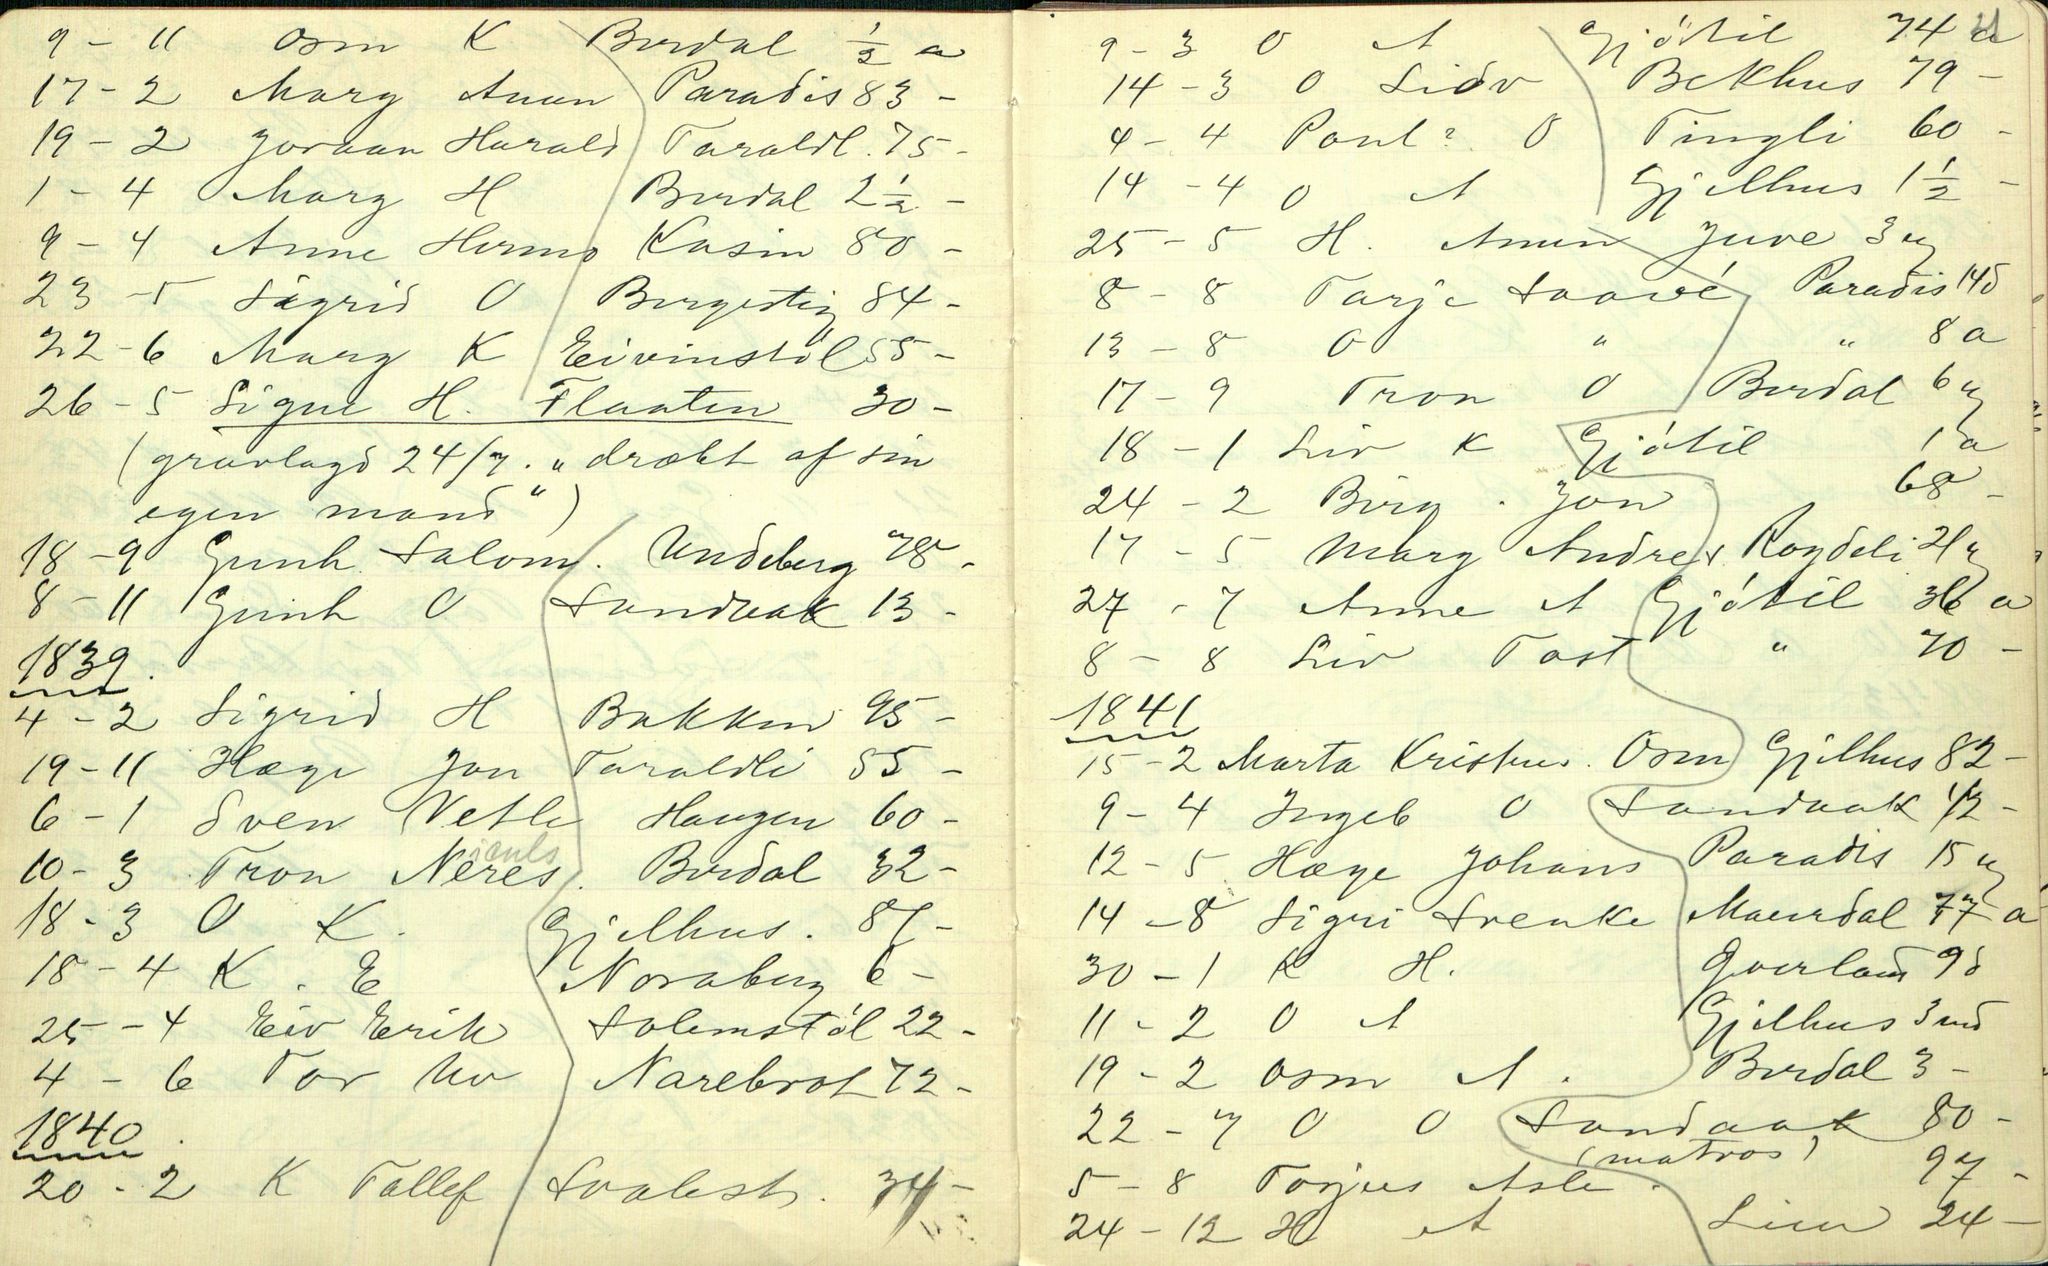 9 - 11 Osm K Burdal ½ a
17 - 2 Marg Anun Paradis 83 -
19 - 2 Joraan Harald Taraldl. 75 -
1 - 4 Marg H Burdal 2½ -
9 - 4 Anne Hermo Kasin 80 -
23 - 5 Sigrid O Bergestig 84 -
22 - 6 Marg K Eivinstöl 55 -
26 - 5 Signe H. Flaaten 30 -
(gravlagd 24/7. „dræbt af sin
egen mand")
18 - 9 Gunh Salom. Undeberg 78 -
8 - 11 Gunh O Sandvak 13 -
1839.
4 - 2 Sigrid H Bakken 95 -
19 - 11 Hæge Jon Taraldli 55 -
6 - 1 Sven Vetle Haugen 60 -
10 - 3 Tron Neres. Burdal 32 -
18 - 3 O K. Gjelhus. 87 -
18 - 4 K. E Noraberg 6 -
25 - 4 Eiv Erik Solemstöl 22 -
4 - 6 Tor Narebrot 72 -
1840.
20 - 2 K Tallef Svalest. 34 -
9 - 3 O A Gjótil 74 a
14 - 3 O Sidv Bekhus 79 -
4 - 4 Paul? O Tingli 60 -
14 - 4 O A Gjelhus 1½ -
25 - 5 H. Anun Juve 3 u
8 - 8 Tarje Saavé Paradis 14 d
13 - 8 O " " 8 a
17 - 9 Tron O Burdal 6 u
18 - 1 Liv K Gjótil 1 a
24 - 2 Birg. Jon 68 -
17 - 5 Marg Andres Roydeli u
27 - 7 Anne A Gjótil 36 a
8 - 8 Liv Tost " 70 -
1841
15 - 2 Marta Osm Gjelhus 82 -
9 - 4 Ingeb O Sandvak 42 -
12 - 5 Hæge Johans Paradis 15 u
14 - 8 Sigri Svenke Maurdal 77 a
30 - 1 K H. Qverland 9 d
11 - 2 O A Gjelhus 3 md
19 - 2 Osm A. Burdal 3 -
22 - 7 O O Sandvak 80 -
(matros)
5 - 8 Torjus Asle. 97 -
24 - 12 H A Lien 24 -